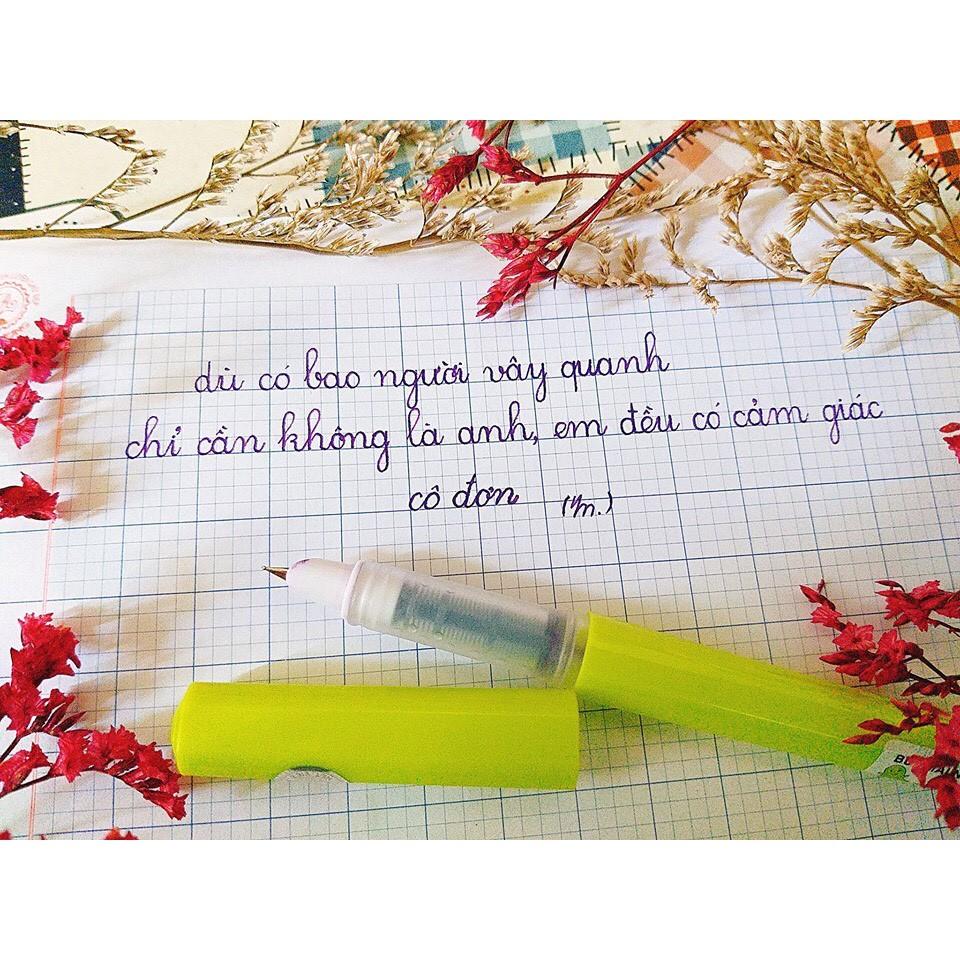 dù có bao người vây quanh
chỉ cần không là anh, em đều có cảm giác
cô đơn